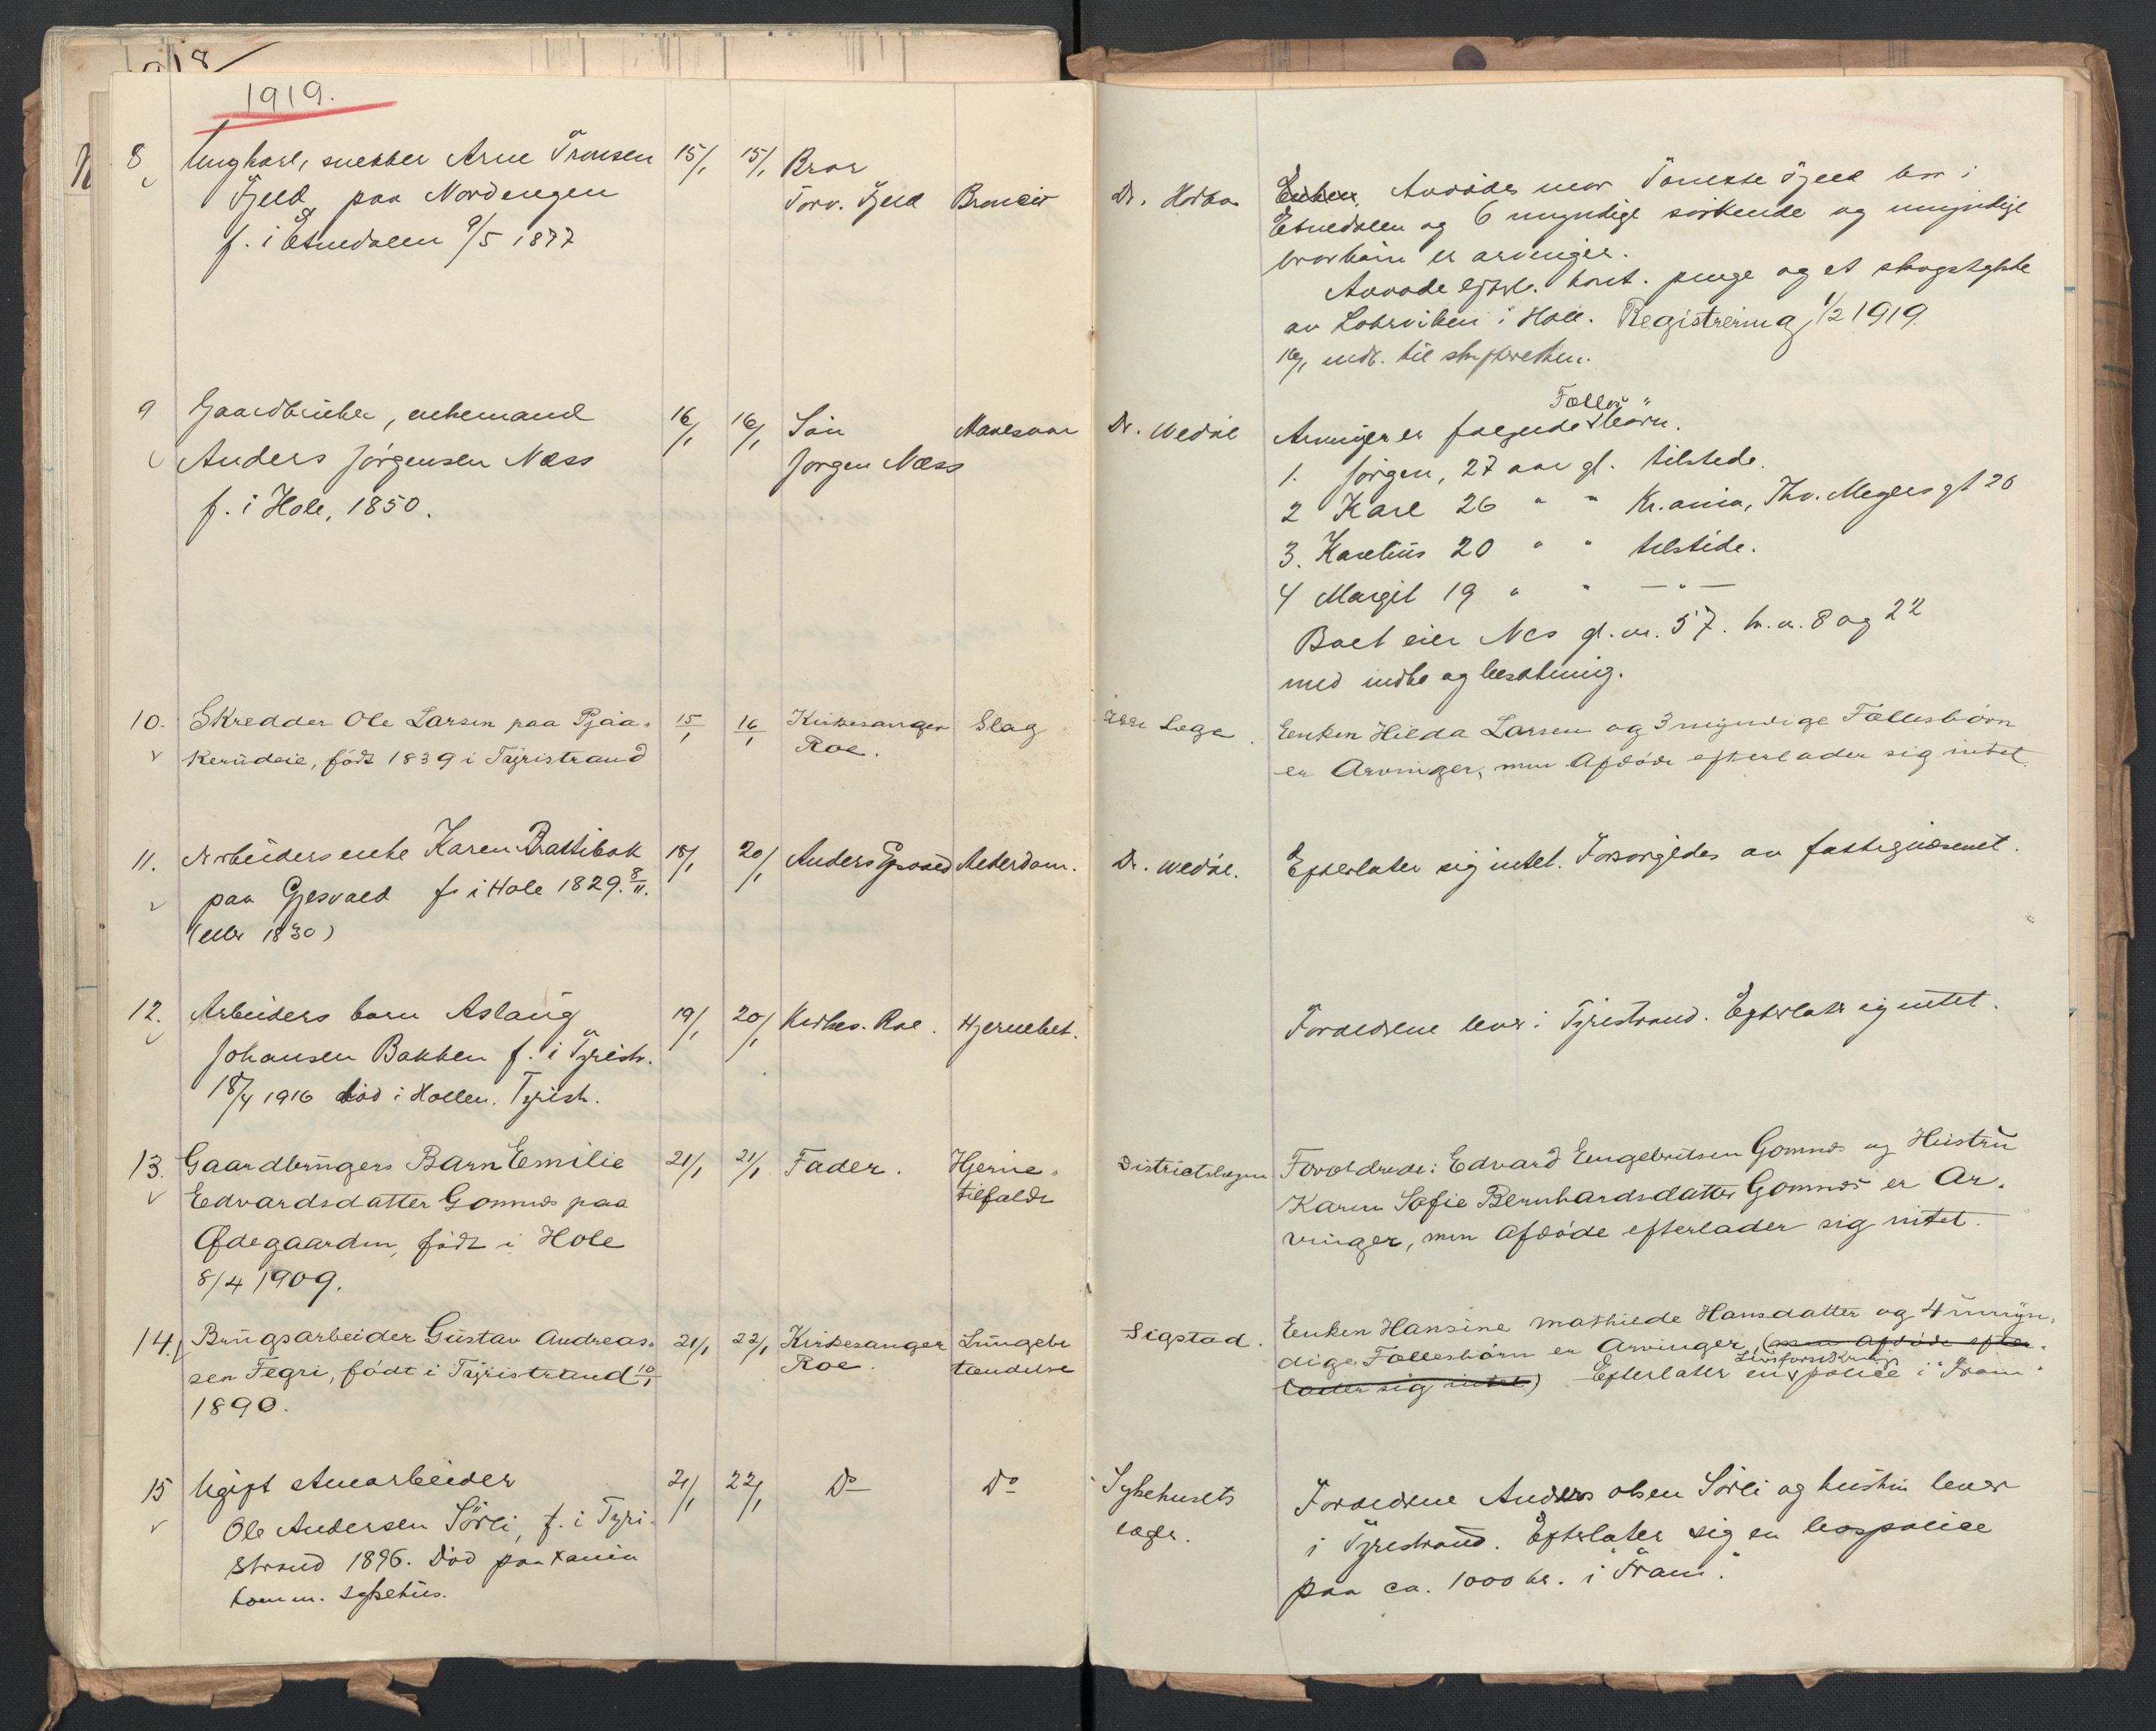 1918
1919.
8 Ungkarl, snekker Arne Tronsen 15/1 15/1 Bror
Fjeld paa Nordengen Torv. Fjeld
f. i Etnedalen 9/5 1877
Dr. Enken, Avdødes mor Fjeld bor i
Etnedalen og 6 myndige søskende og umyndige
brorbørn er arvinger.
Avdøde kont. penge og et skogstykke
av i Hole. Registrering 1/2 1919.
16/1 indb. til skifteretten.
9 Gaardbruker, enkemand 16/1 16/1 Søn Mavesaar
Anders Jørgensen Næss Jørgen Næss
f. i Hole, 1850.
Dr. Wedøe Arvinger er følgende Fælles børn.
1. Jørgen, 27 aar gl. tilstede.
2 Karl 26 " " Kr.ania, Thv. Meyers gt 26
3. Karelius 20 " " tilstede.
4 Margit 19 " " — " —
Boet eier Nes g. nr. 57. b. nr. 8 og 22
med indbo og besætning.
10. Skredder Ole Larsen paa Pjaa- 15/1 16/1 Kirkesanger Slag
kerudeie, født 1839 i Tyristrand Roe.
Ikke Læge. Enken Hilda Larsen og 3 myndige Fællesbørn
er Arvinger, men Afdøde efterlader sig intet.
11. Arbeidersenke Karen Brattibak 18/1 20/1 Anders Gjesvold Alderdom.
paa Gjesvold f. i Hole 1829. 8/11.
(eller 1830)
Dr. Wedøe. Efterlater sig intet. Forsørgedes av fattigvæsenet.
12. Arbeiders barn Aslaug 19/1 20/1 Kirkes. Roe. Hjernebet.
Johansen Bakken f. i Tyristr.
18/4 1916 død i Hollen. Tyristr.
Forældrene lever i Tyristrand. Efterlater sig intet.
13. Gaardbrugers Barn Emilie 21/1 21/1 Fader. Hjerne-
Edvardsdatter Gomnæs paa tilfælde
Ødegaarden, født i Hole
8/4 1909.
Districtslægen Forældrene: Edvard Engebritsen Gomnæs og Hustru
Karen Sofie Bernhardsdatter Gomnæs er Ar-
vinger, men Afdøde efterlader sig intet.
14. Brugsarbeider Gustav Andreas- 21/1 22/1 Kirkesanger Lungebe
sen Tegri, født i Tyristrand 10/1 Roe. tændelse
1890.
Sigstad. Enken Hansine Mathilde Hansdatter og 4 umyn-
dige Fællesbørn er Arvinger, (men Afdøde efter-
lader sig intet) Efterlater en Livsforsikrings police i "Fram"
15 Ugift Anarbeider 21/1 22/1 Do Do
Ole Andersen Sørli, f. i Tyri-
strand 1896. Død paa
komm. sykehus.
Sykehusets Forældrene Anders Olsen Sørli og hustru lever
læge. i Tyristrand. Efterlater sig en livspolice
paa ca. 1000 kr. i "Fram".